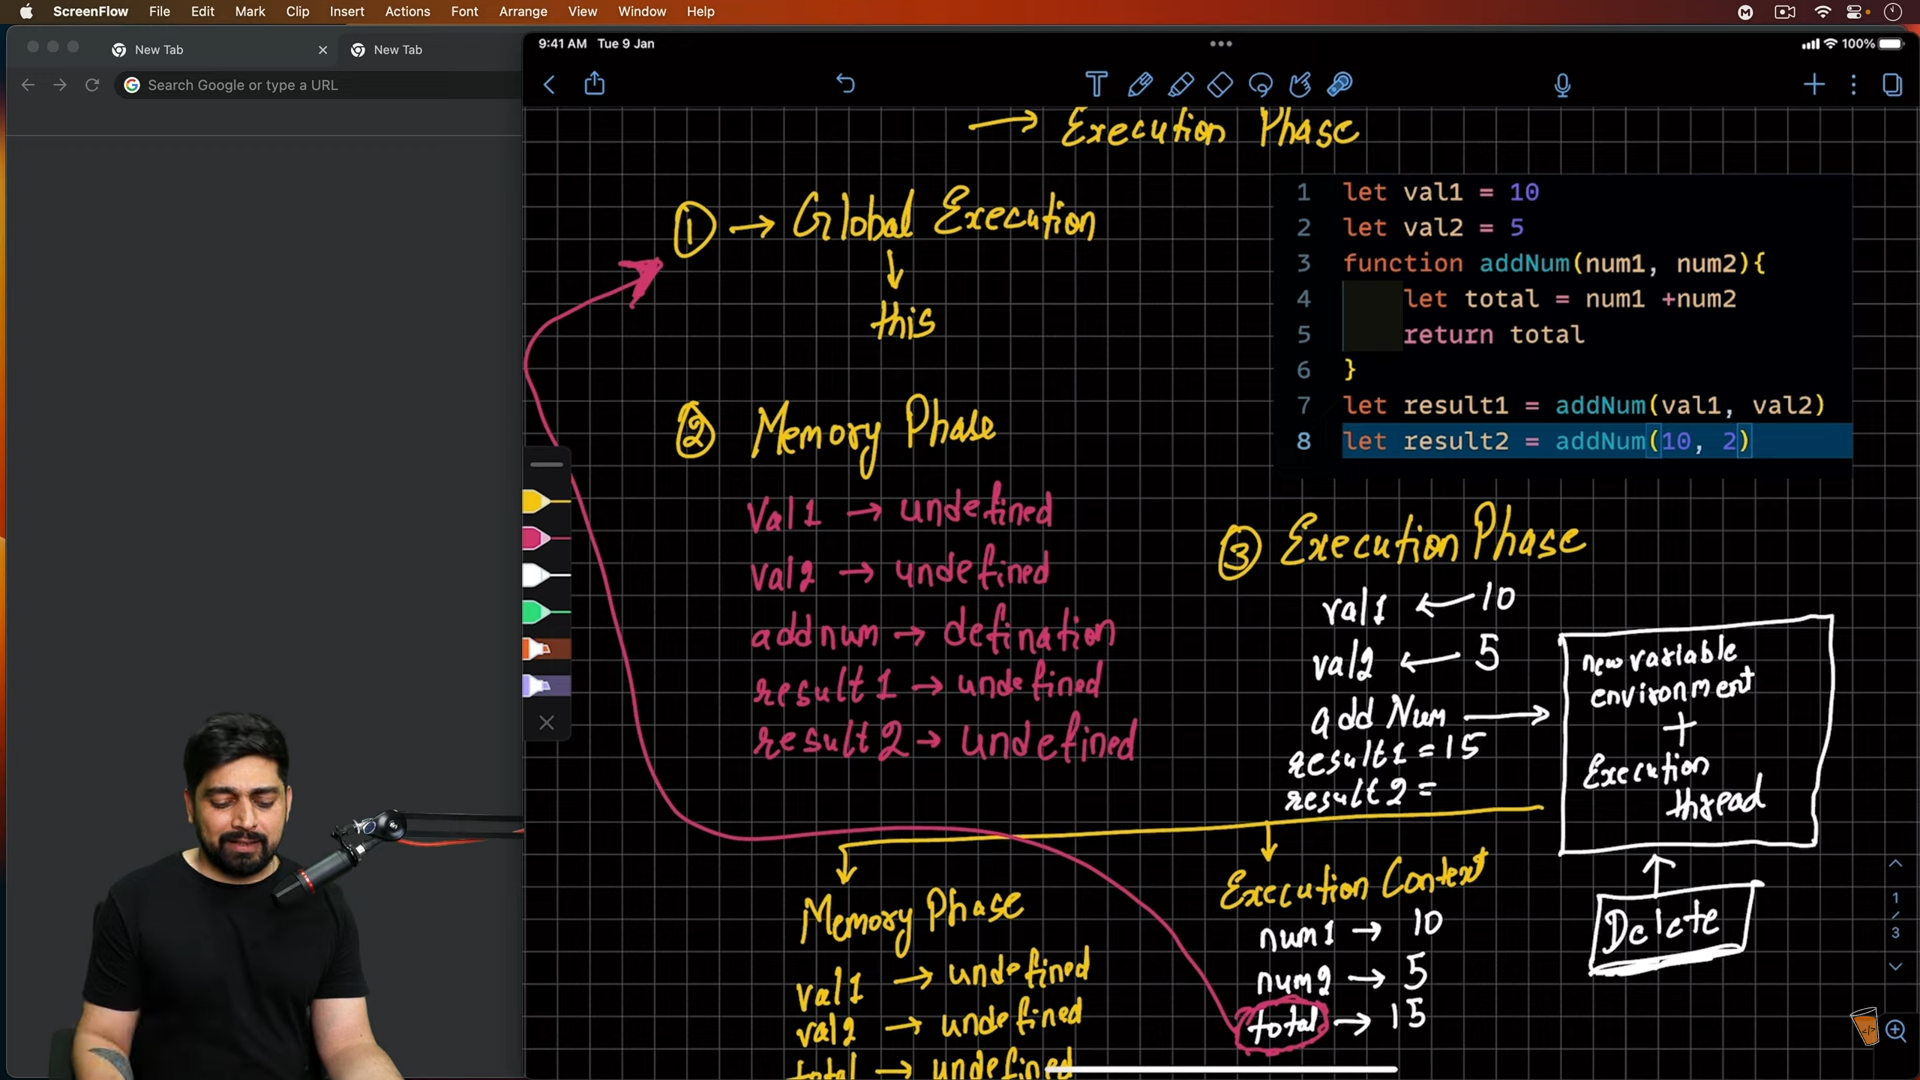 ScreenFlow File Edit Mark Clip Insert Actions Font Arrange View Window Help
New Tab
New Tab
Search Google or type a URL
9:41 AM Tue 9 Jan
100%
→ Execution Phase
① → Global Execution
↓
this
② Memory Phase
Val1 → undefined
val2 → undefined
addnum → defination
result1 → undefined
result2 → undefined
1 let val1 = 10
2 let val2 = 5
3 function addNum(num1, num2){
4 let total = num1 +num2
5 return total
6 }
7 let result1 = addNum(val1, val2)
8 let result2 = addNum(10, 2)
③ Execution Phase
val1 ← 10
val2 ← 5
add Num →
result1 = 15
result2 =
new variable
environment
+
Execution
thread
Delete
Memory Phase
val1 → undefined
val2 → undefined
total → undefined
Execution Context
num1 → 10
num2 → 5
total → 15
1
/
3